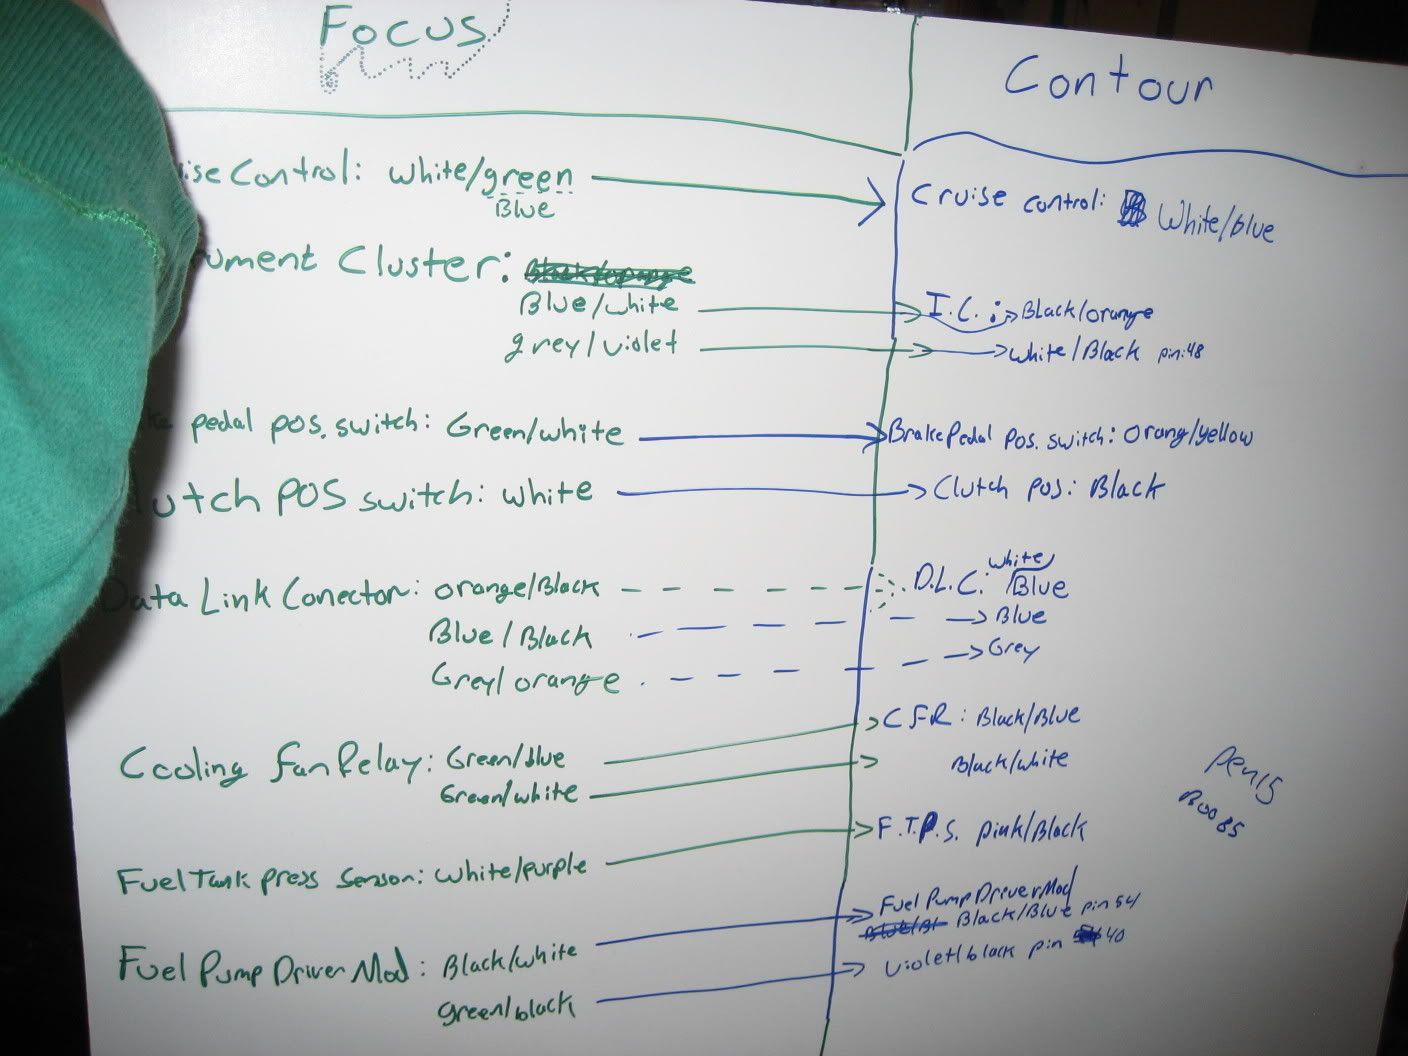 Focus
Contour
ise Control: White/green
Blue
Cruise control: White/blue
rument Cluster:
Blue/white
I.C.: Black/orange
grey/violet
white/Black pin:48
ke pedal pos. switch: Green/white
Brake Pedal Pos. switch: orang/yellow
lutch POS switch: white
Clutch pos: Black
Data Link Conector: orange/Black
D.L.C: white/Blue
Blue/Black
Blue
Grey/orange
Grey
Cooling fan Relay: Green/blue
CFR: Black/Blue
Green/white
Black/white
Fuel Tank press Sensor: white/purple
F.T.P.S. pink/Black
Pen15
Boo85
Fuel Pump Driver Mod: Black/white
Fuel Pump Driver Mod
Blue/Bl Black/Blue pin 54
green/black
violet/black pin 40